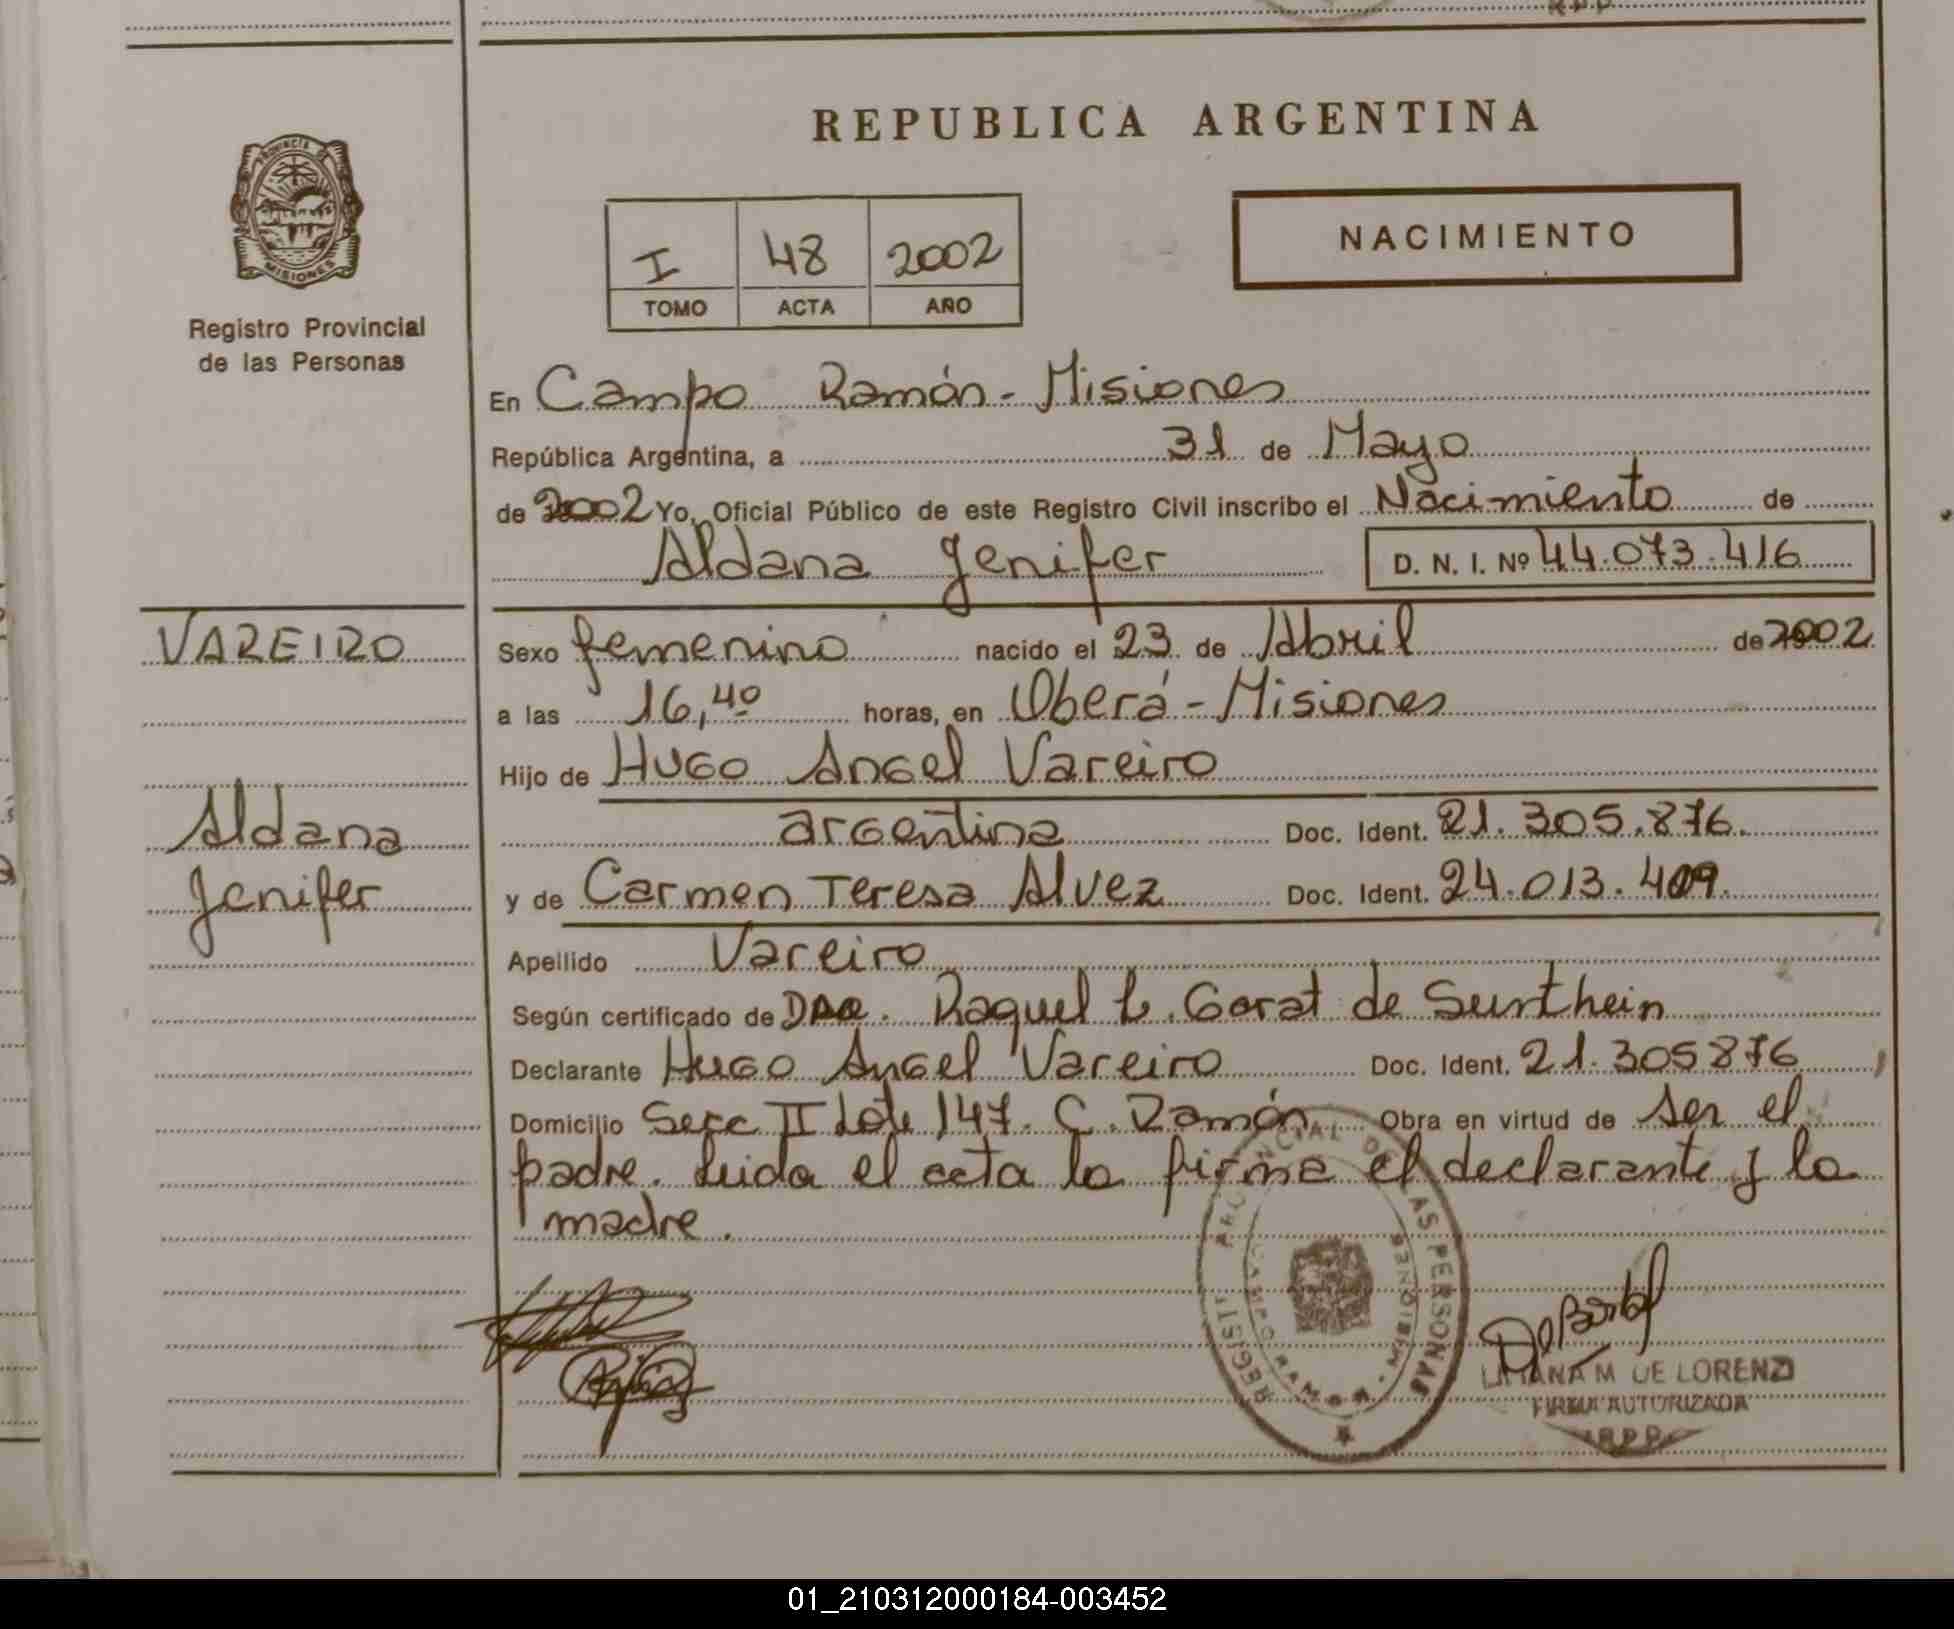 REPUBLICA ARGENTINA
PROVINCIA DE
MISIONES
Registro Provincial
de las Personas
I 48 2002
TOMO ACTA AÑO
NACIMIENTO
En Campo Ramón - Misiones
República Argentina, a 31 de Mayo
de 2002 Yo, Oficial Público de este Registro Civil inscribo el Nacimiento de
Aldana Jenifer D. N. I. Nº 44.073.416
VAREIRO
Aldana
Jenifer
Sexo femenino nacido el 23 de Abril de 2002
a las 16,40 horas, en Oberá - Misiones
Hijo de Hugo Angel Vareiro
argentina Doc. Ident. 21.305.876.
y de Carmen Teresa Alvez Doc. Ident. 24.013.409.
Apellido Vareiro
Según certificado de Dra. Raquel L. Gorat de Sunthein
Declarante Hugo Angel Vareiro Doc. Ident. 21.305876
Domicilio Secc II Lote 147. C. Ramón Obra en virtud de ser el
padre. Leida el acta la firma el declarante y la
madre.
REGIST PROVINCIAL DE LAS PERSONAS
CAMPO RAMON - MISIONES
M DE LORENZI
FIRMA AUTORIZADA
R.P.P.
01_210312000184-003452